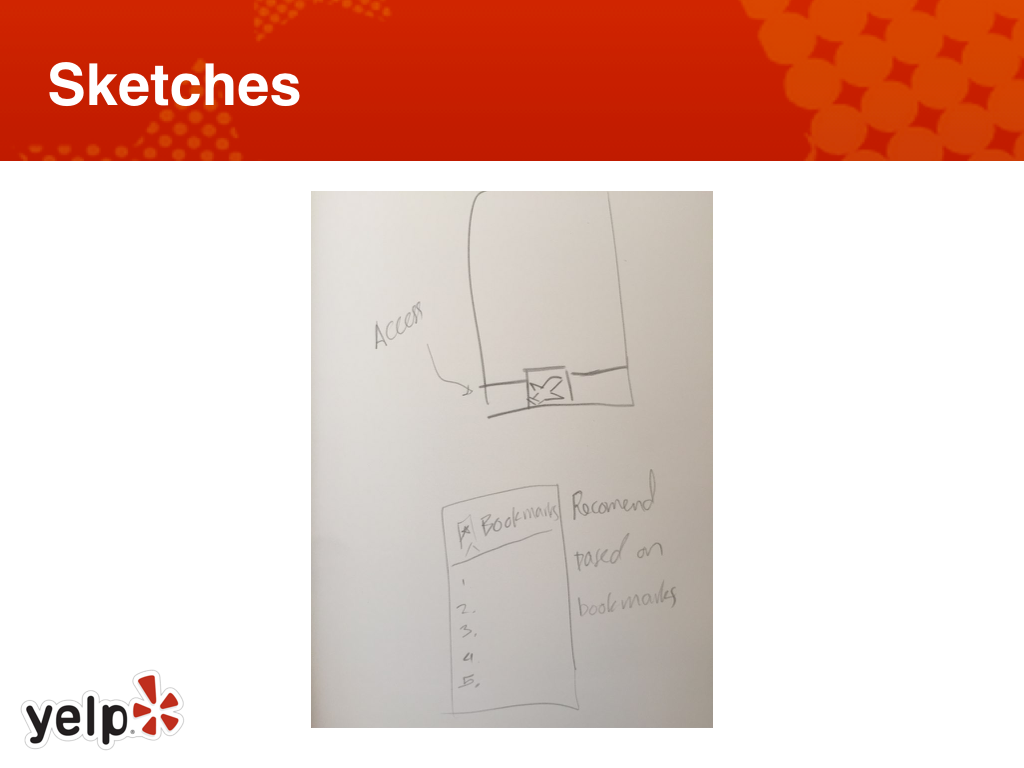 Sketches
Access
Bookmarks
1
2.
3.
4
5.
Recomend
based on
bookmarks
yelp